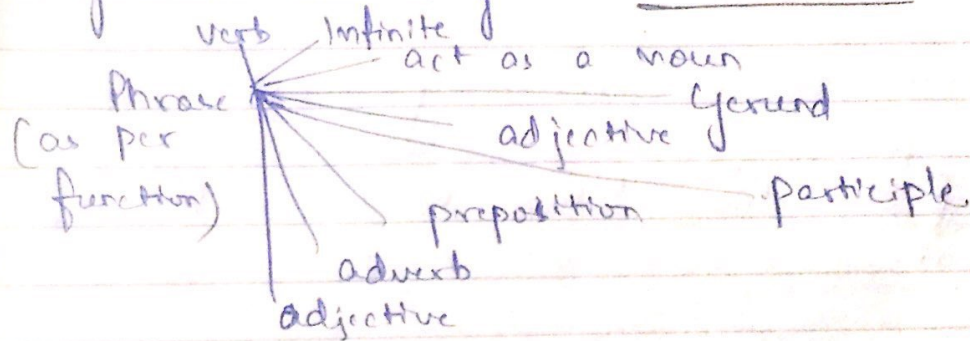 verb Infinite
act as a noun
Phrase Gerund
(as per adjective
function) participle.
preposition
adverb
adjective